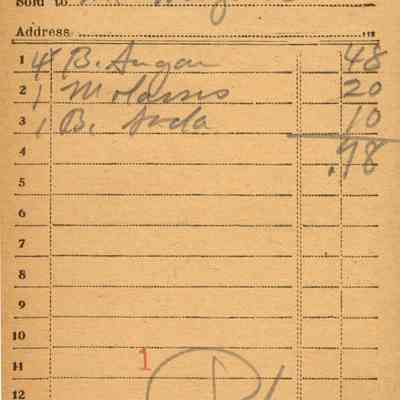 Sold to
Address
1 4 B. Sugar 48
2 1 Molasses 20
3 1 B. Soda 10
4 .78
5
6
7
8
9
10
11 1
12